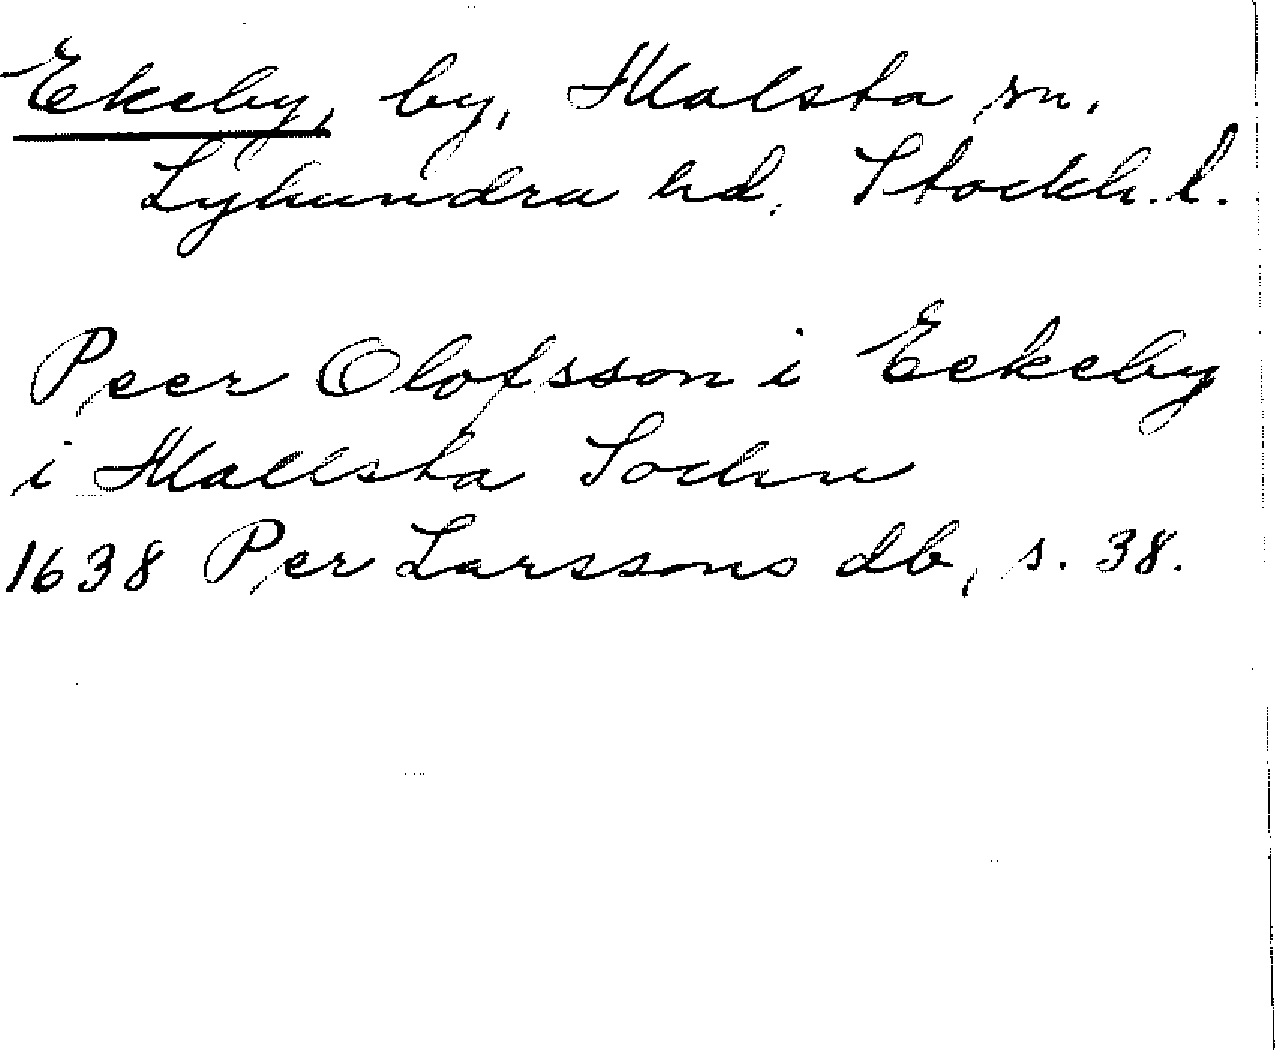 Ekeby, by, Malsta sn.
Lyhundra hd. Stockh. l.
Peer Olofsson i Eekeby
i Mallsta Sochn
1638 Per Larssons db, s. 38.